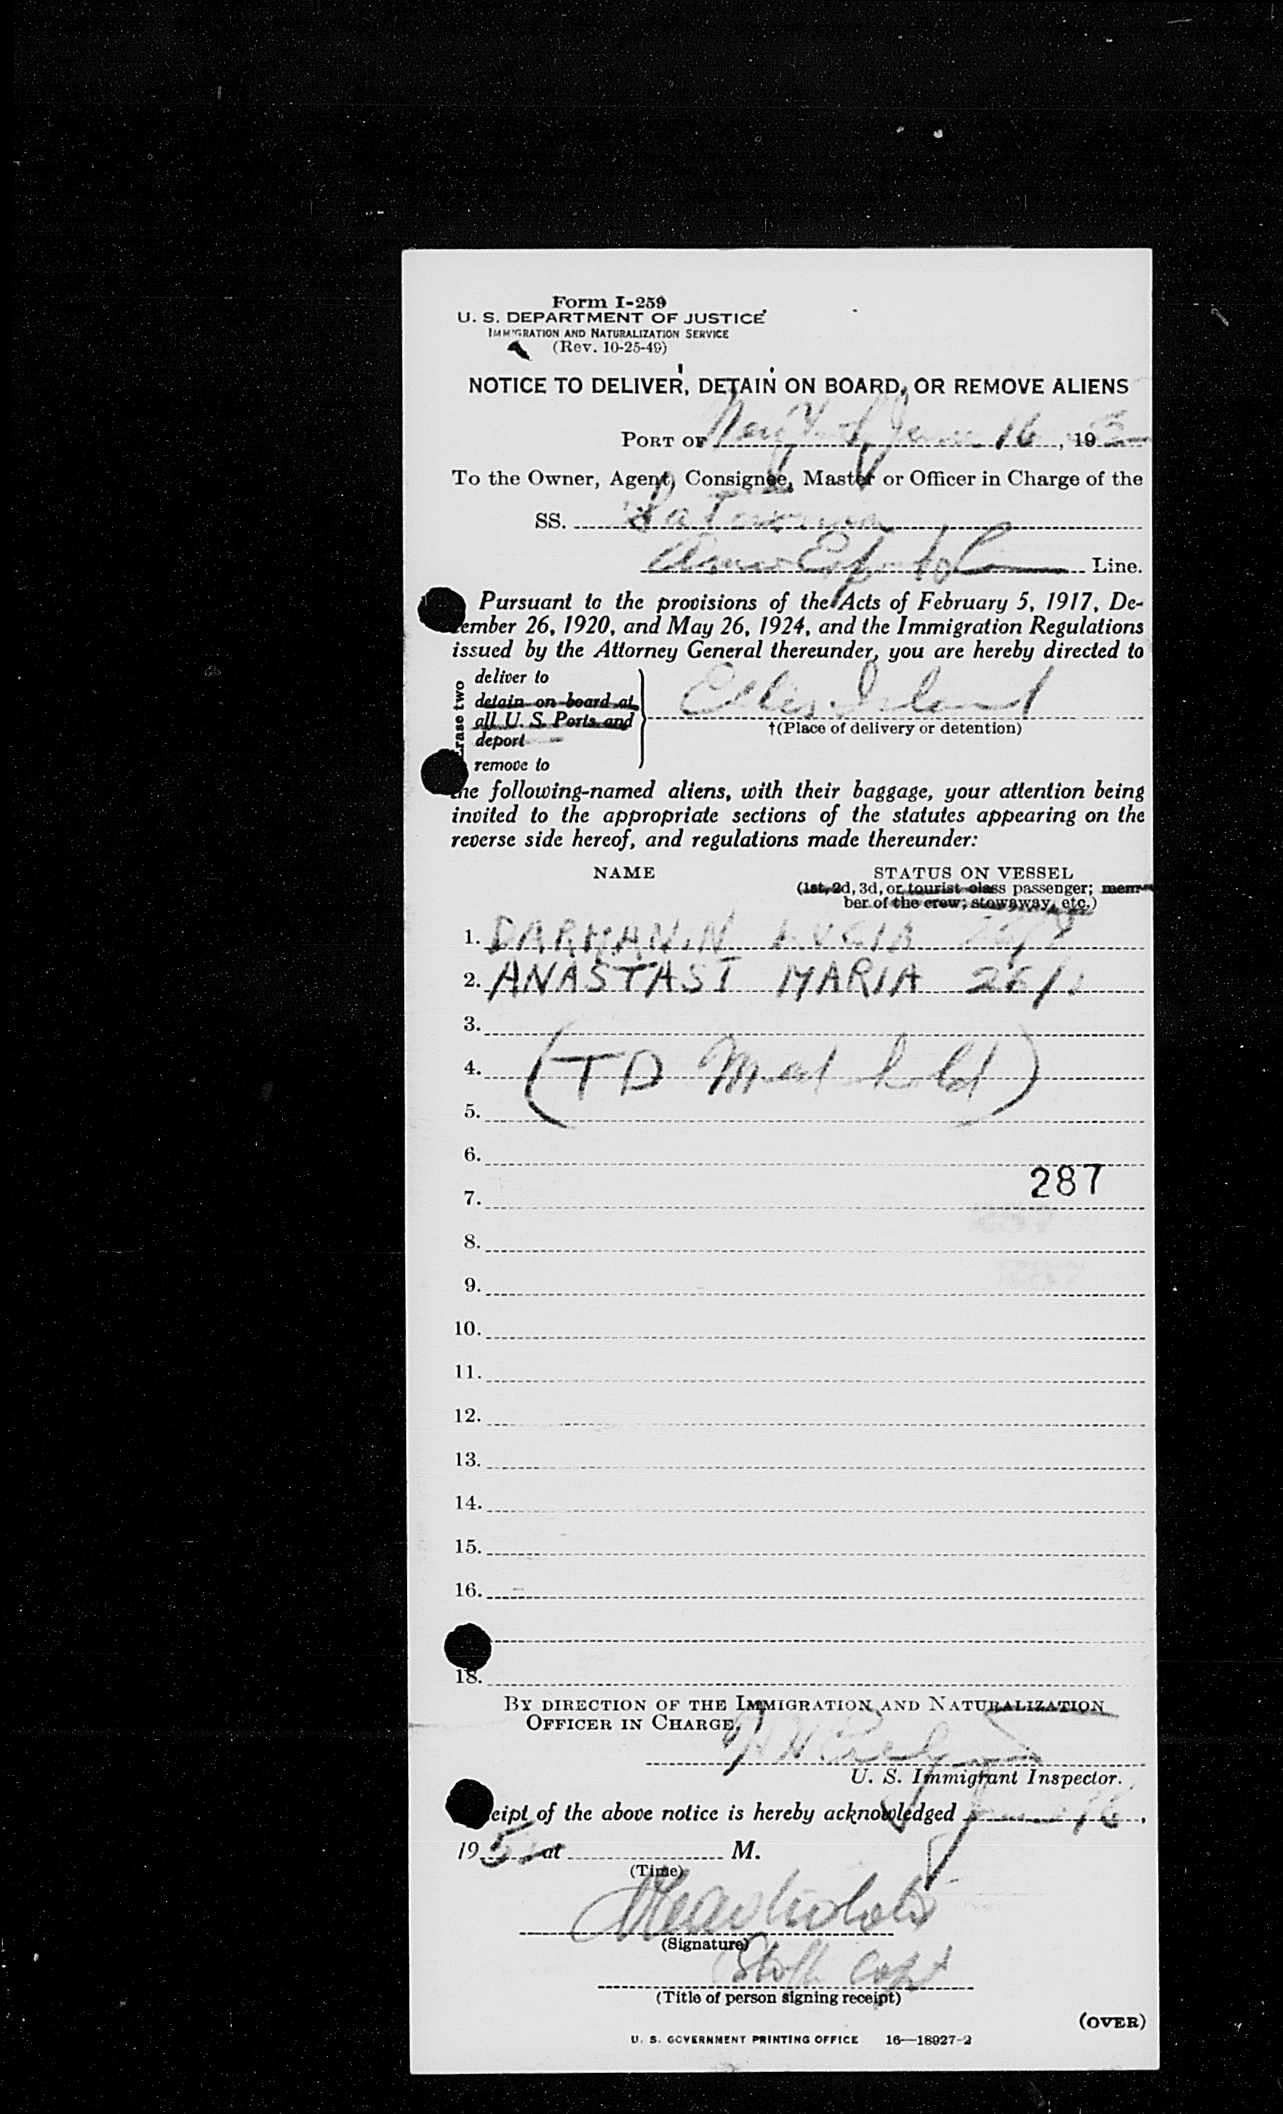 Form I-259
U. S. DEPARTMENT OF JUSTICE
IMMIGRATION AND NATURALIZATION SERVICE
(Rev. 10-25-49)
NOTICE TO DELIVER, DETAIN ON BOARD, OR REMOVE ALIENS
PORT OF New York June 16, 195
To the Owner, Agent, Consignee, Master or Officer in Charge of the
SS.
Line.
Pursuant to the provisions of the Acts of February 5, 1917, De-
cember 26, 1920, and May 26, 1924, and the Immigration Regulations
issued by the Attorney General thereunder, you are hereby directed to
Erase two
deliver to
detain on board at
all U. S. Ports and
deport
remove to
Ellis Island
†(Place of delivery or detention)
the following-named aliens, with their baggage, your attention being
invited to the appropriate sections of the statutes appearing on the
reverse side hereof, and regulations made thereunder:
NAME STATUS ON VESSEL
(1st, 2d, 3d, or tourist class passenger; mem-
ber of the crew; stowaway, etc.)
1. DARMANIN LUCIA
2. ANASTASI MARIA
3.
4. (TD Med hold)
5.
6.
287
7.
8.
9.
10.
11.
12.
13.
14.
15.
16.
18.
BY DIRECTION OF THE IMMIGRATION AND NATURALIZATION
OFFICER IN CHARGE,
U. S. Immigrant Inspector.
Receipt of the above notice is hereby acknowledged June 16,
195 at M.
(Time)
(Signature)
(Title of person signing receipt)
(OVER)
U. S. GOVERNMENT PRINTING OFFICE 16—18927-2